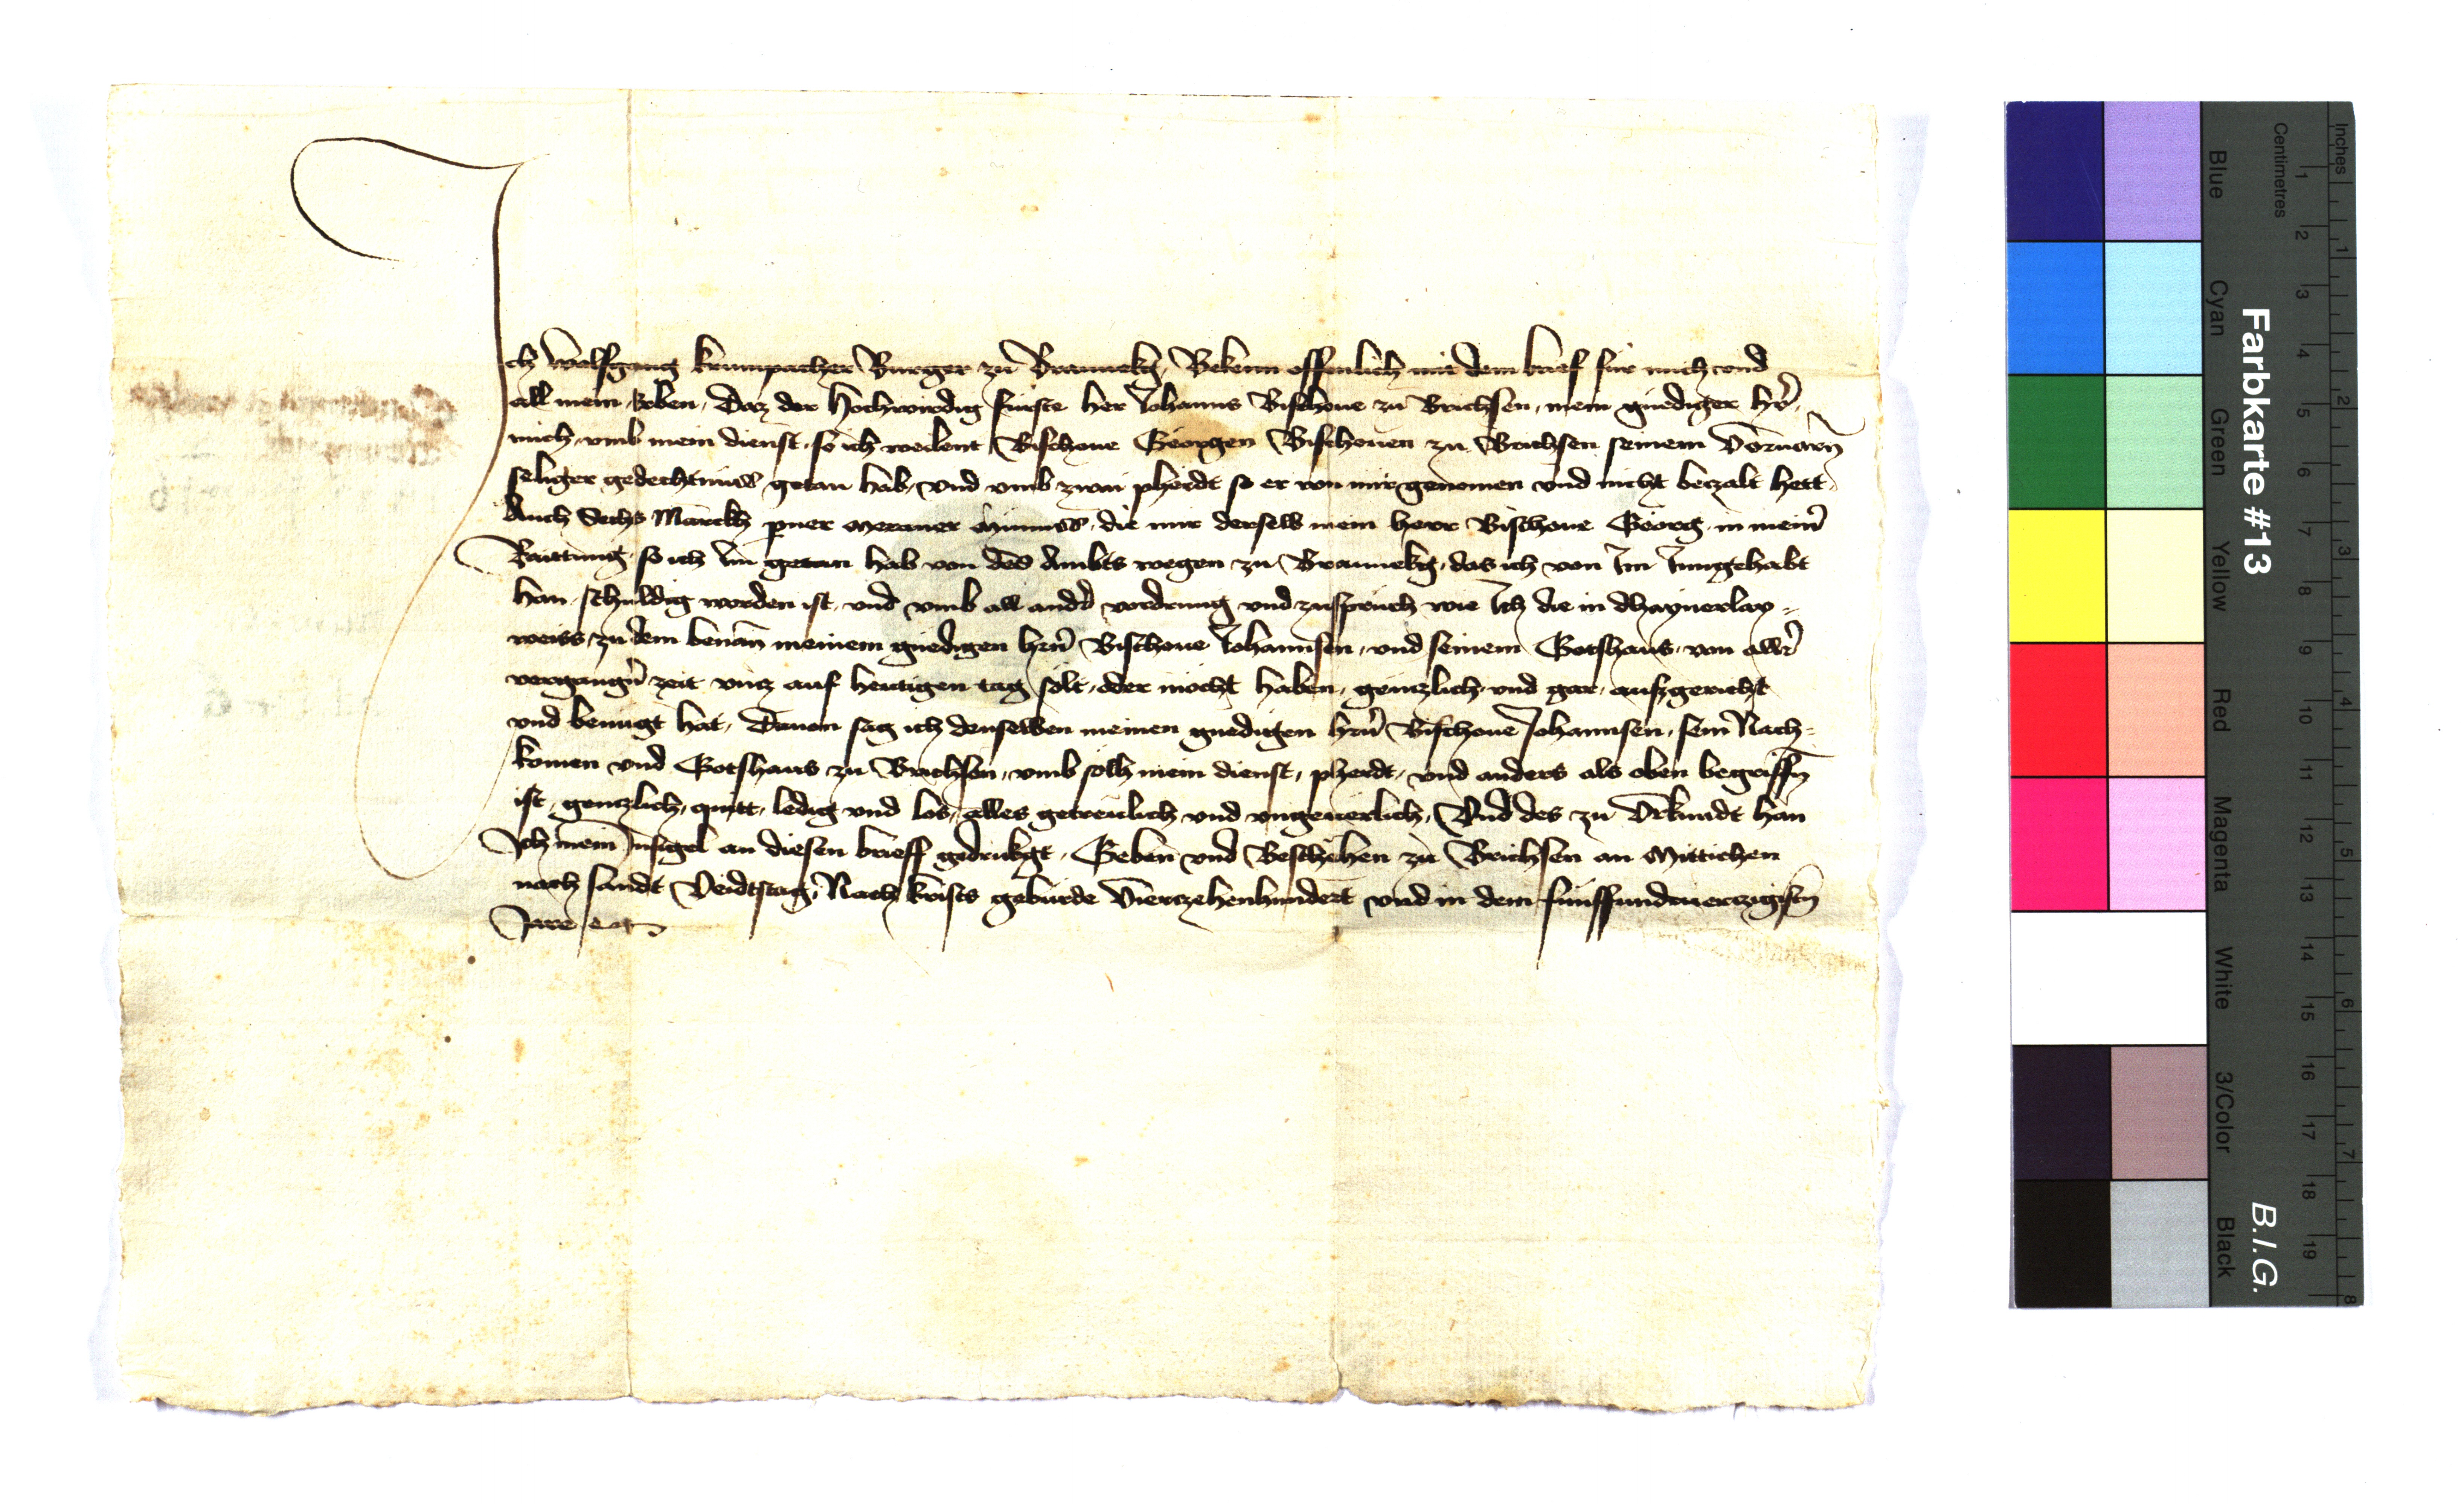 Ich Wolfgang krumpacher Burger zu Braunekg, Bekenn offenlich mit dem brief für mich vnd
all mein Erben, Daz der Hochwirdig fürste her Johanns Bischoue zu Brichsen, mein gnediger hr̄,
mich vmb mein dienst, so ich weilent Bischoue Georgen Bischouen zu Brichsen seinem Voruarn̄
seliger gedechtnüss getan hab, vnd vmb zwai pherdt so er von mir genomen vnd nicht beczalt hett,
Auch Sechs Marckh perner Meraner Münnss, die mir derselb mein herr Bischoue Georg, in mein̄
Raittung, so ich Im getan hab von des Ambts wegen zu Braunekg, das ich von Im Inngehabt
han, schuldig worden ist, vnd vmb all and̄ vordrung vnd zuspruch wie Ich die in dhaynerlay-
weiss, zu dem benan̄ meinem gnedigen hrn̄ Bischoue Johannsen, vnd seinem Gotshaus, von allr̄
vergangn̄ zeit vncz auf heutigen tag solt, oder möcht haben, genczlich vnd gar, aufzgericht
vnd benügt hat, Dauon sag ich denselben meinen gnedigen hrn̄ Bischoue Johannsen, sein Nach-
komen vnd Gotshaus zu Brichsen, vmb solh mein dienst, pherdt, vnd anders als oben begriffn̄
ist, genczlich, quitt, ledig vnd los, alles getreulich vnd vngeuerlich, Vnd des zu Vrkundt han
Ich mein Insigel an diesen brieff gedrukgt, Geben vnd Beschehen zu Brichsen an Mittichen
nach sandt Veidtstag, Nach krists gebürde Vierczehenhundert vnd in dem fünffundvierczigistn̄
Jare etc
Farbkarte #13
B.I.G.
Inches
Centimetres
Blue
Cyan
Green
Yellow
Red
Magenta
White
3/Color
Black
1 2 3 4 5 6 7 8 9 10 11 12 13 14 15 16 17 18 19
1 2 3 4 5 6 7 8